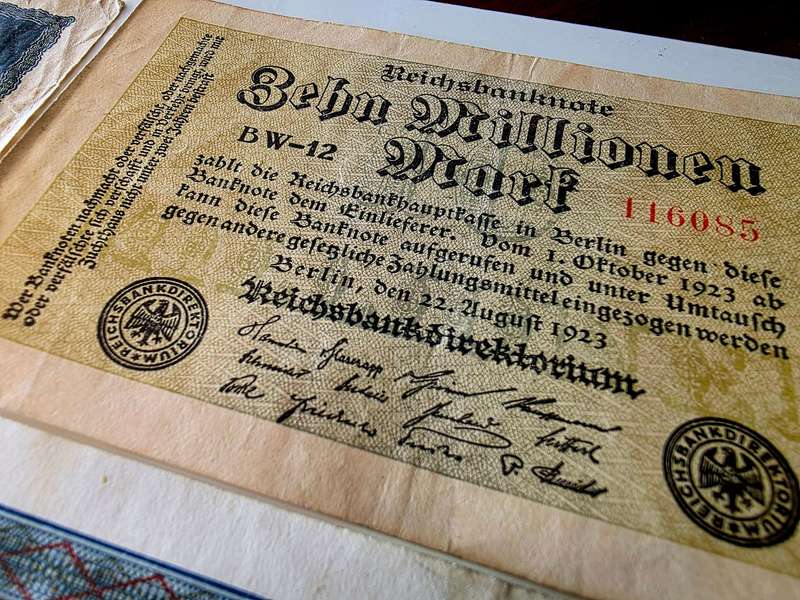 Reichsbanknote
Zehn Millionen
Mark
BW-12
116085
zahlt die Reichsbankhauptkasse in Berlin gegen diese
Banknote dem Einlieferer. Vom 1. Oktober 1923 ab
kann diese Banknote aufgerufen und unter Umtausch
gegen andere gesetzliche Zahlungsmittel eingezogen werden
Berlin, den 22. August 1923
Reichsbankdirektorium
REICHSBANKDIREKTORIUM
REICHSBANKDIREKTORIUM
Wer Banknoten nachmacht oder verfälscht, oder nachgemachte
oder verfälschte sich verschafft und in Verkehr bringt, wird mit
Zuchthaus nicht unter zwei Jahren bestraft